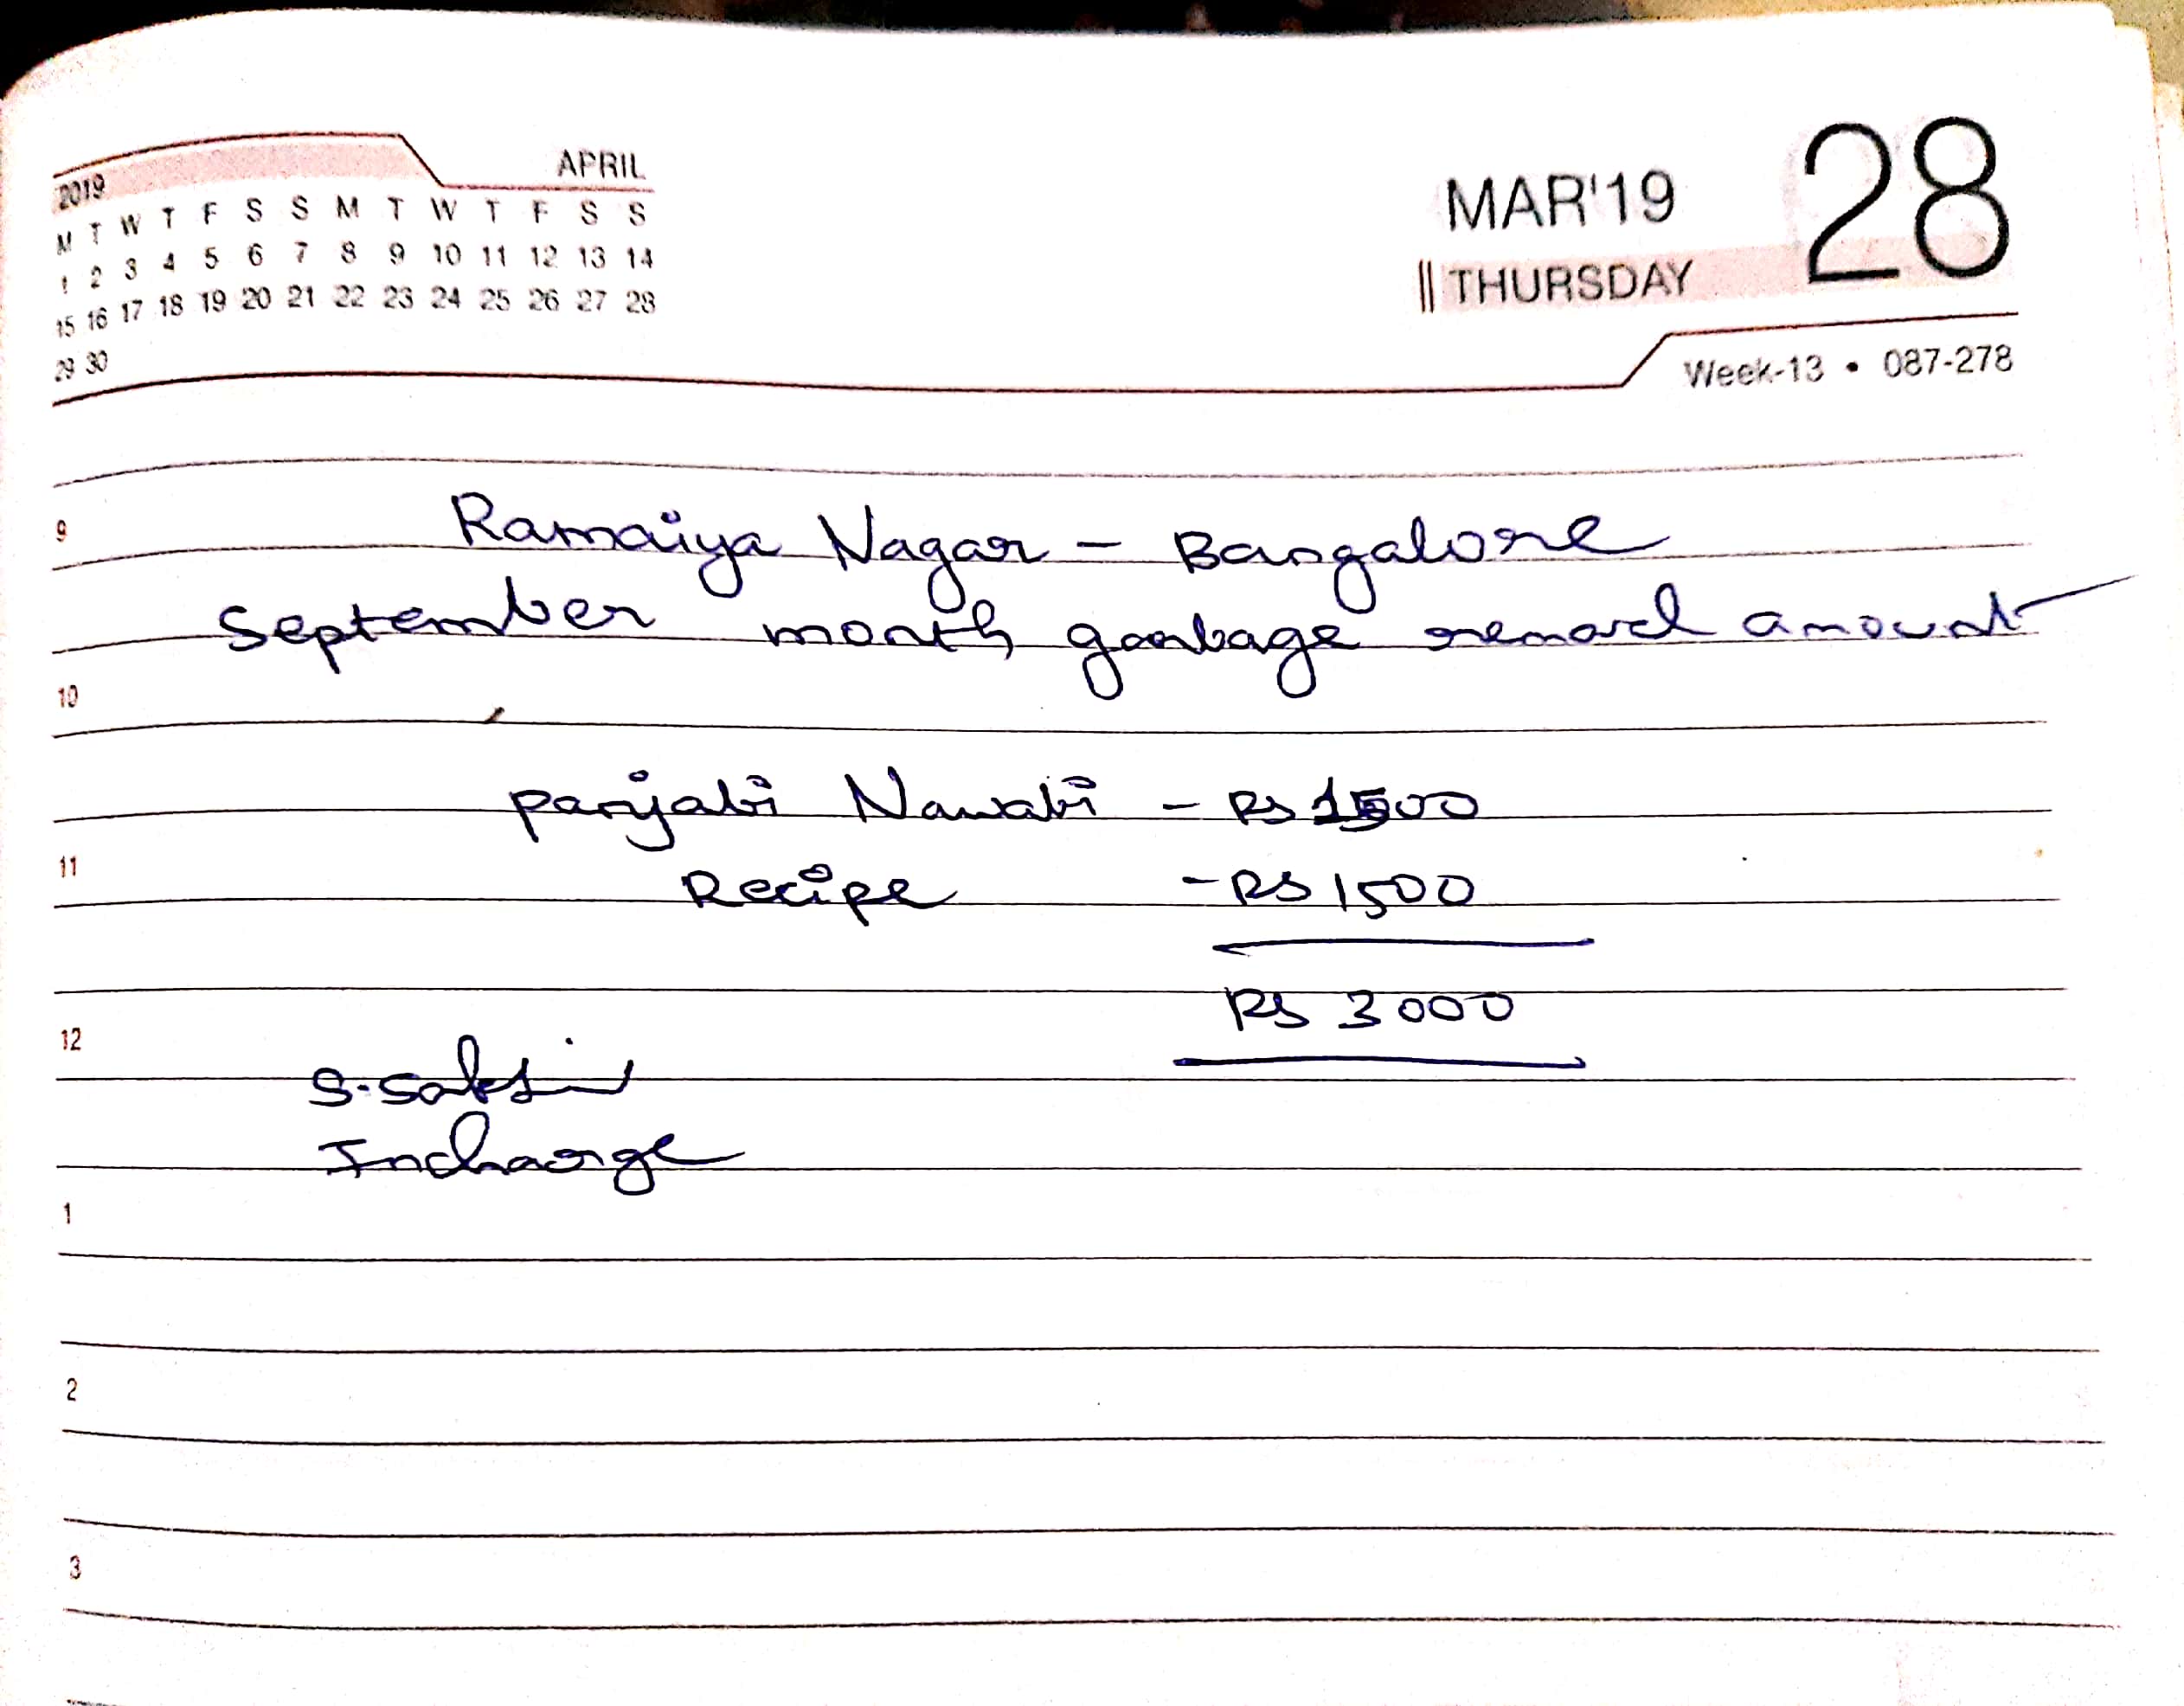 2019 APRIL
M T W T F S S M T W T F S S
1 2 3 4 5 6 7 8 9 10 11 12 13 14
15 16 17 18 19 20 21 22 23 24 25 26 27 28
29 30
MAR'19 28
THURSDAY
Week-13 • 087-278
9
Ramaiya Nagar - Bangalore
September month garbage amount
10
Panjabi Nawabi - Rs 1500
11
Recipe - Rs 1500
Rs 3000
12
S.
Incharge
1
2
3